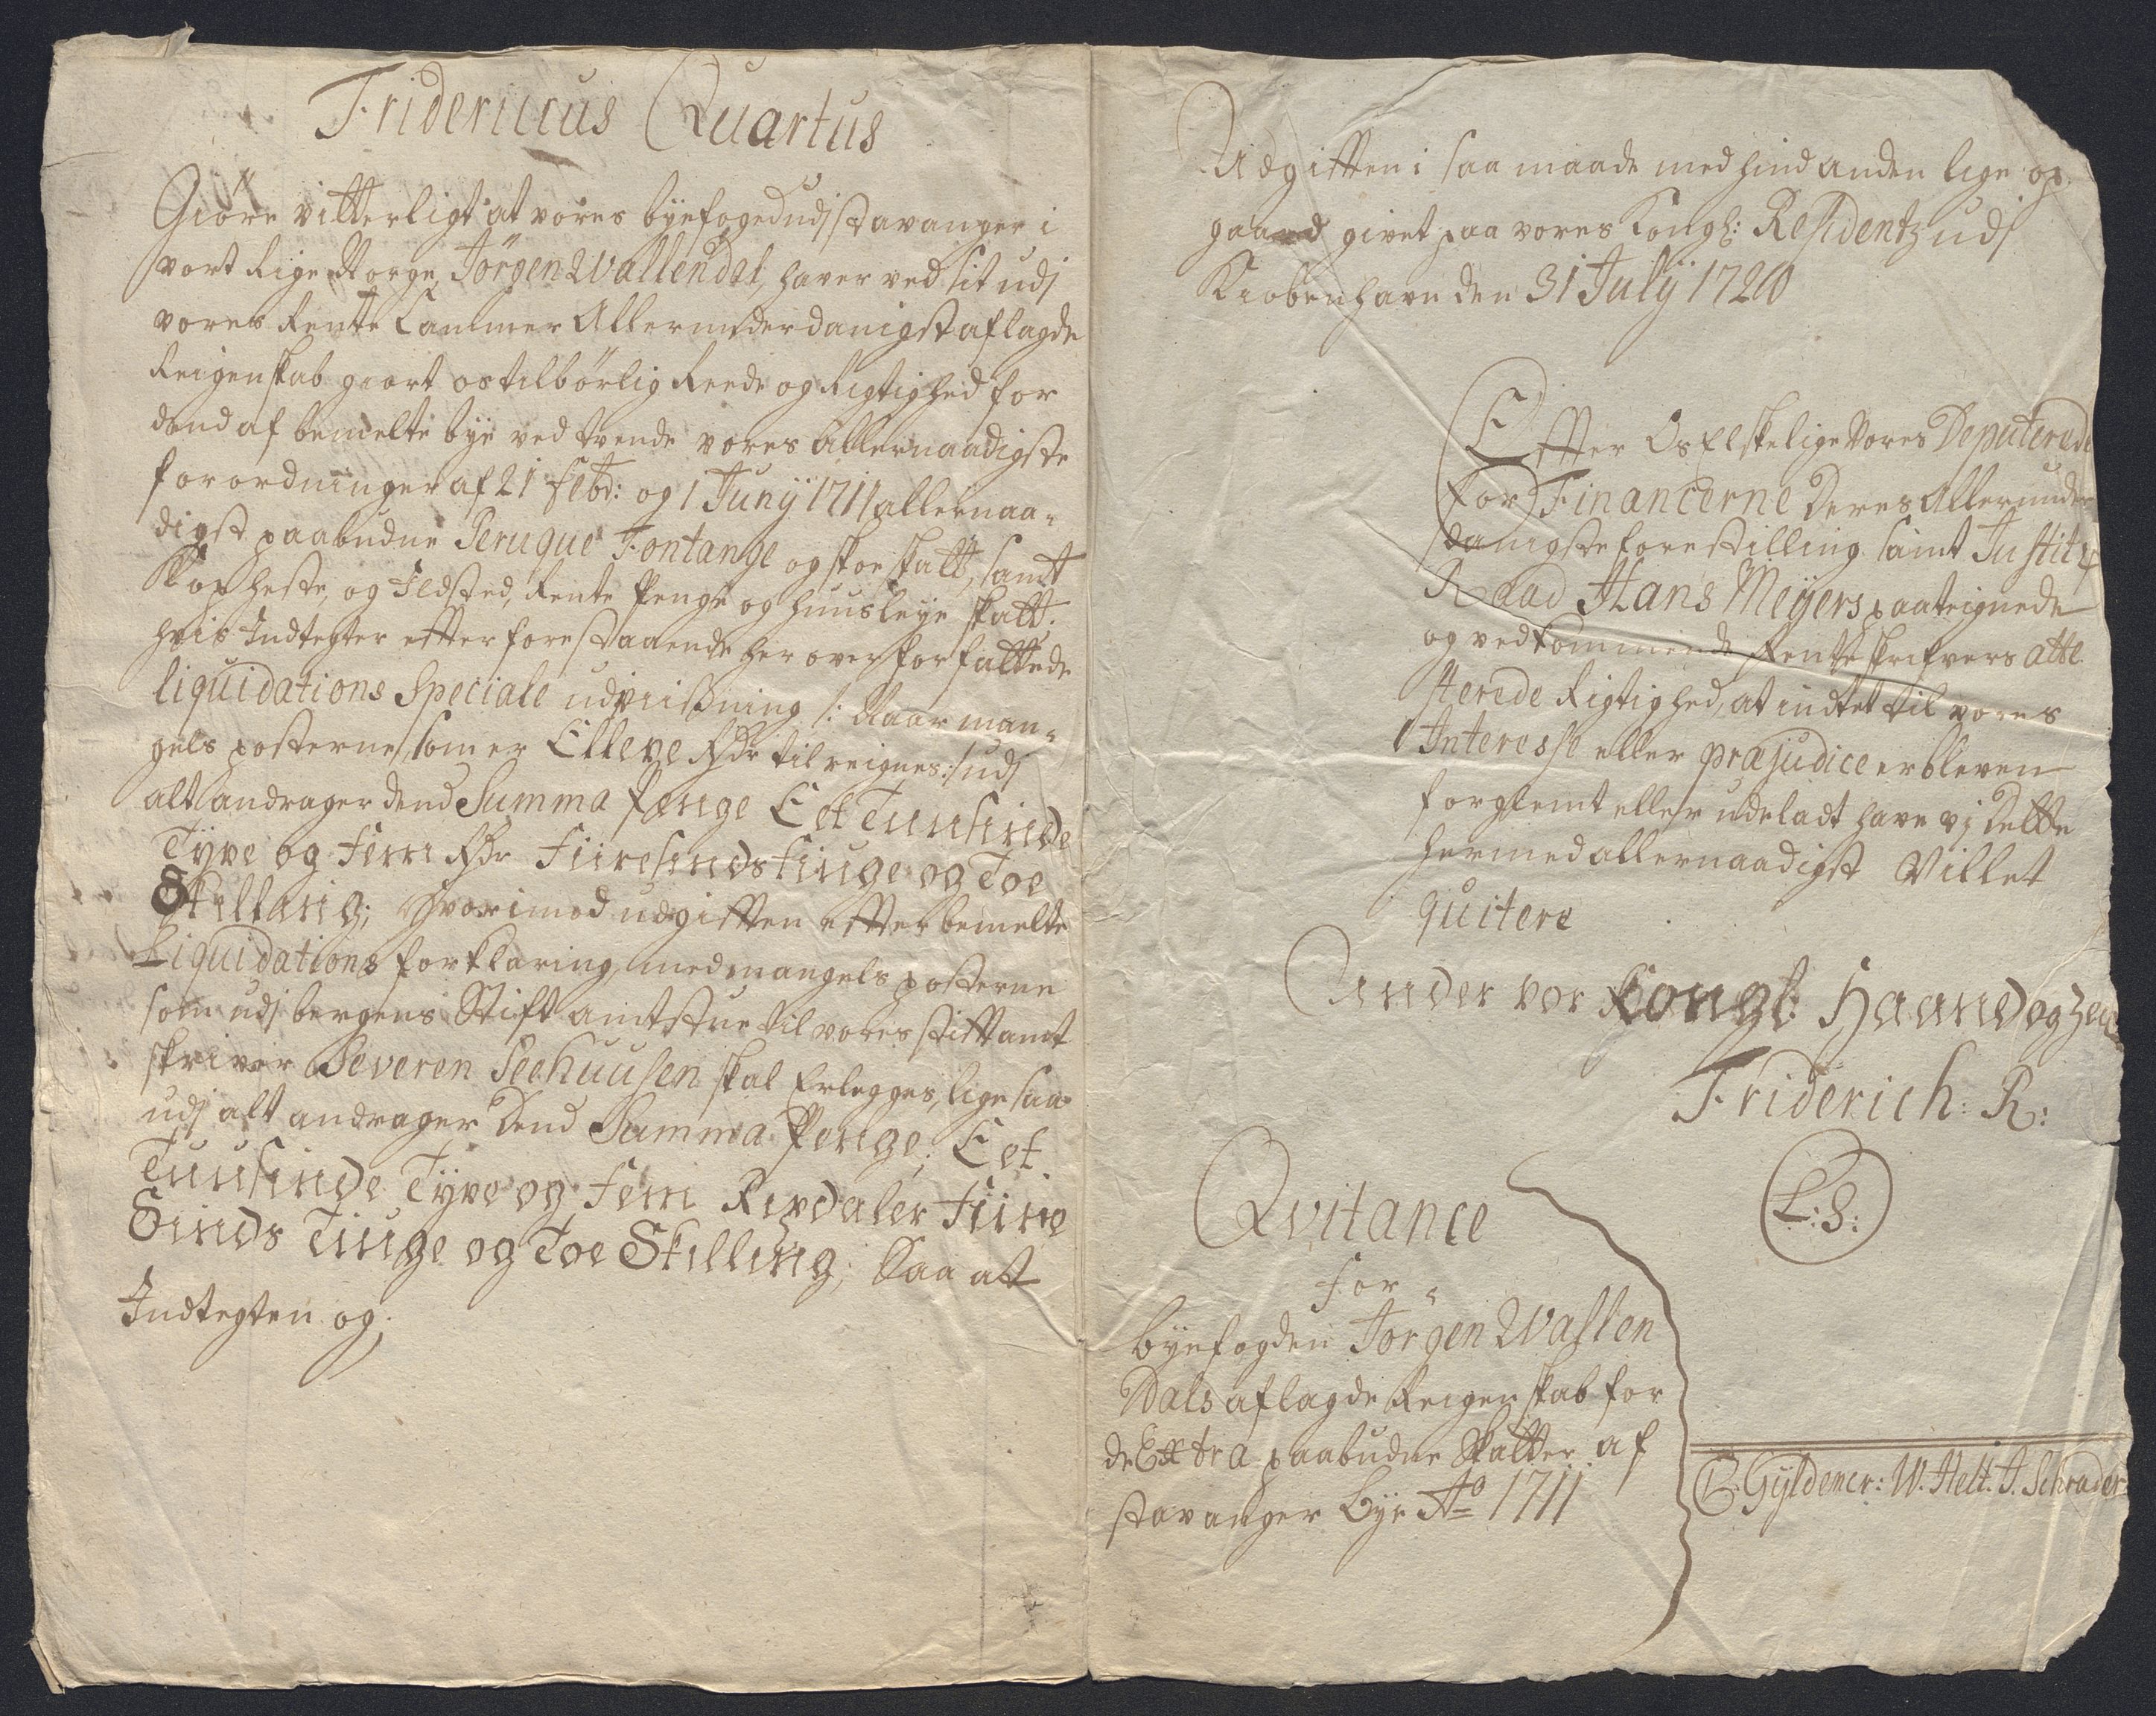 Fridericus Quartus
Giöre vitterligt at vores byefoged udj Stavanger i
vort Rige Norge, Jörgen Wallendal, haver ved sit udj
vores Rente Cammer Allerunderdanigst aflagde
Reigenskab giort os tilbörlig Reede og Rigtighed for
dend af bemelte bye ved tvende vores Allernaadigste
forordninger af 21 Febr: og 1 Junij 1711 allernaa-
digst paabudne Peruque Fontange og Skoe skatt, samt
Kop heste, og Ildsted, Rente Penge og Huusleye skatt.
hvis Indtegter effter forestaaende her over forfattede
liquidations Speciale udviisning /: Naar man-
gels posterne som er Elleve Rdr tilreignes :/ udj
alt andrager dend Summa Penge Eet Tuusinde
Tyve og Fem Rdr Fiiresinds tiuge og Toe
Skilling; Hvorimod udgifften effter bemelte
Liquidations forklaring, med mangels posterne
som udj bergens Stift amtstue til vores stifftamt
skriver Severen Seehuusen skal Erlegges, lige saa
udj alt andrager Dend Summa Penge; Eet
Tuusinde Tyve og Fem Rixdaler Fiire
Sinds Tiuge og Toe Skilling; Saa at
Indtegten og
Udgifften i saa maade med hind anden lige op
gaaed givet paa vores Kongl: Residentz udj
Kiobenhavn den 31 Julij 1720
Effter Os Elskelige Vores Deputerede
for Financerne Deres Allerunder
danigste forestilling samt Justitz
Raad Hans Meyers paateignede
og vedkommende Renteskrifvers atte
sterede Rigtighed, at indtet til vores
Interesse eller præjudice er bleven
forglemt eller udeladt have vj Dette
hermed allernaadigst Villet
quitere
Under vor Kongl: Haand og Zeigl
Friderich: R:
L:S:
Qvitance
for
byefogden Jörgen Wallen
Dals aflagde Reigenskab for
de Extra paabudne Skatter af
Stavanger Bye Ao 1711
C. Gyldencr: W. Helt. J. Schrader